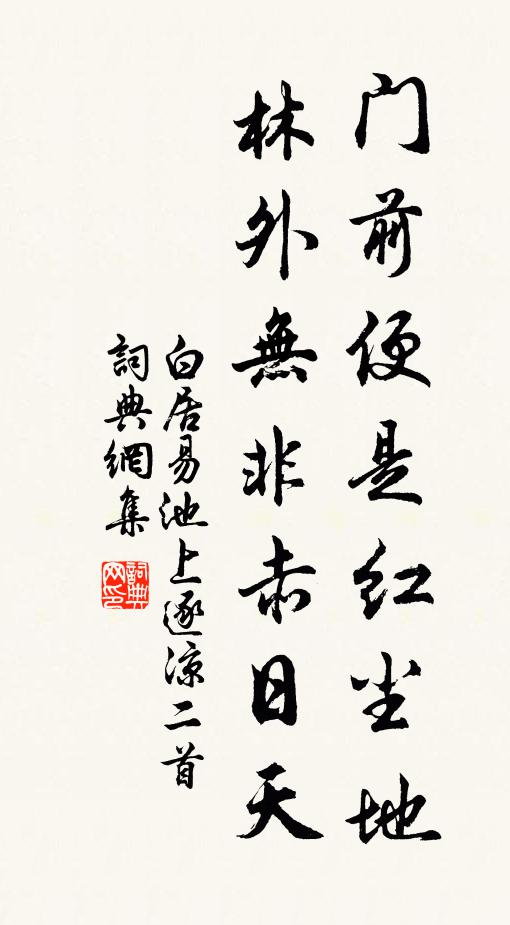 门前便是红尘地
林外無非赤日天
白居易池上逐凉二首
詞典網集
詞典网印